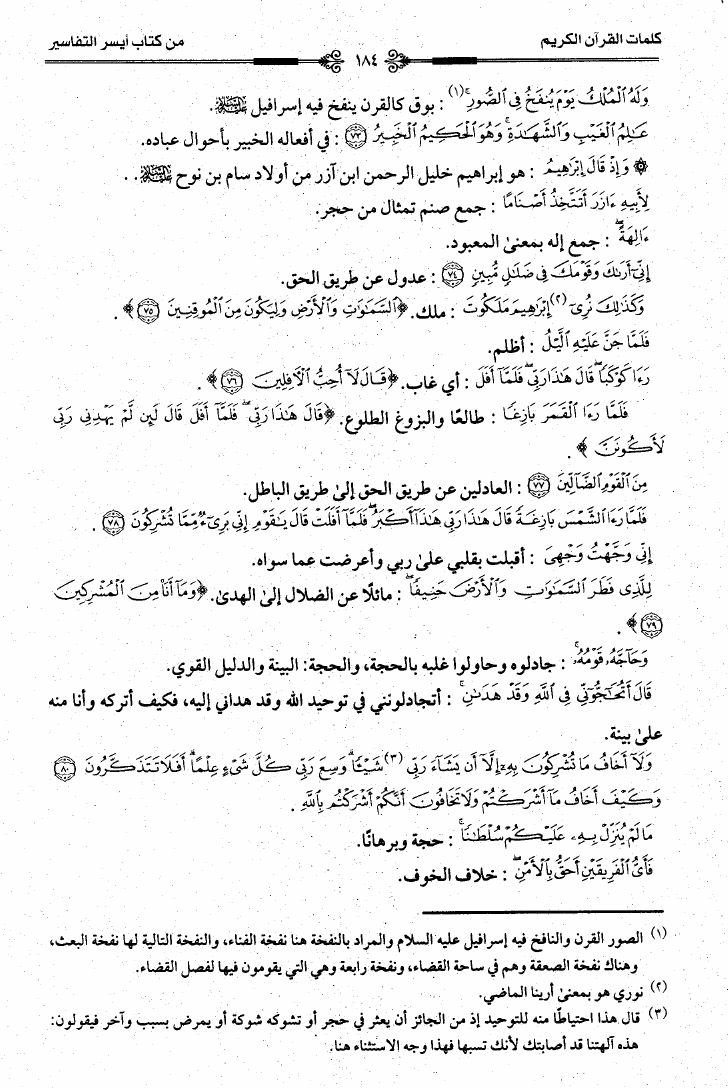 كلمات القرآن الكريم من كتاب أيسر التفاسير
١٨٤
وَلَهُ الْمُلْكُ يَوْمَ يُنفَخُ فِي الصُّورِ (١) : بوق كالقرن ينفخ فيه إسرافيل عليه السلام.
عَالِمُ الْغَيْبِ وَالشَّهَادَةِ وَهُوَ الْحَكِيمُ الْخَبِيرُ ٧٣ : في أفعاله الخبير بأحوال عباده.
۞ وَإِذْ قَالَ إِبْرَاهِيمُ : هو إبراهيم خليل الرحمن ابن آزر من أولاد سام بن نوح عليه السلام . .
لِأَبِيهِ ءَازَرَ أَتَتَّخِذُ أَصْنَامًا : جمع صنم تمثال من حجر.
ءَالِهَةً : جمع إله بمعنىٰ المعبود.
إِنِّي أَرَاكَ وَقَوْمَكَ فِي ضَلَالٍ مُّبِينٍ ٧٤ : عدول عن طريق الحق.
وَكَذَلِكَ نُرِي (٢) إِبْرَاهِيمَ مَلَكُوتَ : ملك. ﴿السَّمَاوَاتِ وَالْأَرْضِ وَلِيَكُونَ مِنَ الْمُوقِنِينَ ٧٥﴾ .
فَلَمَّا جَنَّ عَلَيْهِ الَّيْلُ : أظلم.
رَءَا كَوْكَبًا قَالَ هَذَا رَبِّي فَلَمَّا أَفَلَ : أي غاب. ﴿قَالَ لَا أُحِبُّ الْآفِلِينَ ٧٦﴾ .
فَلَمَّا رَءَا الْقَمَرَ بَازِغًا : طالعًا والبزوغ الطلوع. ﴿قَالَ هَذَا رَبِّي فَلَمَّا أَفَلَ قَالَ لَئِن لَّمْ يَهْدِنِي رَبِّي
لَأَكُونَنَّ﴾ .
مِنَ الْقَوْمِ الضَّالِّينَ ٧٧ : العادلين عن طريق الحق إلىٰ طريق الباطل.
فَلَمَّا رَءَا الشَّمْسَ بَازِغَةً قَالَ هَذَا رَبِّي هَذَا أَكْبَرُ فَلَمَّا أَفَلَتْ قَالَ يَاقَوْمِ إِنِّي بَرِيءٌ مِّمَّا تُشْرِكُونَ ٧٨ .
إِنِّي وَجَّهْتُ وَجْهِيَ : أقبلت بقلبي علىٰ ربي وأعرضت عما سواه.
لِلَّذِي فَطَرَ السَّمَاوَاتِ وَالْأَرْضَ حَنِيفًا : مائلًا عن الضلال إلىٰ الهدىٰ. ﴿وَمَا أَنَا مِنَ الْمُشْرِكِينَ
٧٩﴾ .
وَحَاجَّهُ قَوْمُهُ : جادلوه وحاولوا غلبه بالحجة، والحجة: البينة والدليل القوي.
قَالَ أَتُحَاجُّونِّي فِي اللَّهِ وَقَدْ هَدَانِ : أتجادلونني في توحيد الله وقد هداني إليه، فكيف أتركه وأنا منه
علىٰ بينة.
وَلَا أَخَافُ مَا تُشْرِكُونَ بِهِ إِلَّا أَن يَشَاءَ رَبِّي (٣) شَيْئًا وَسِعَ رَبِّي كُلَّ شَيْءٍ عِلْمًا أَفَلَا تَتَذَكَّرُونَ ٨٠
وَكَيْفَ أَخَافُ مَا أَشْرَكْتُمْ وَلَا تَخَافُونَ أَنَّكُمْ أَشْرَكْتُم بِاللَّهِ .
مَا لَمْ يُنَزِّلْ بِهِ عَلَيْكُمْ سُلْطَانًا : حجة وبرهانًا.
فَأَيُّ الْفَرِيقَيْنِ أَحَقُّ بِالْأَمْنِ : خلاف الخوف.
(١) الصور القرن والنافخ فيه إسرافيل عليه السلام والمراد بالنفخة هنا نفخة الفناء، والنفخة التالية لها نفخة البعث،
وهناك نفخة الصعقة وهم في ساحة القضاء، ونفخة رابعة وهي التي يقومون فيها لفصل القضاء.
(٢) نوري هو بمعنىٰ أرينا الماضي.
(٣) قال هذا احتياطًا منه للتوحيد إذ من الجائز أن يعثر في حجر أو تشوكه شوكة أو يمرض بسبب وآخر فيقولون:
هذه آلهتنا قد أصابتك لأنك تسبها فهذا وجه الاستثناء هنا.